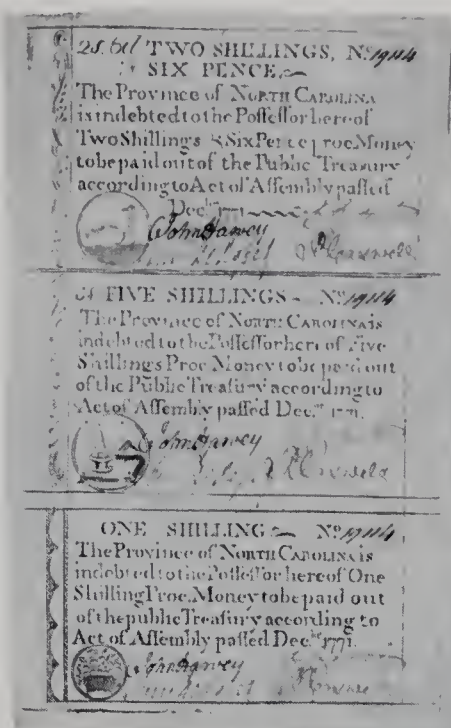 2s. 6d TWO SHILLINGS, No. 19114
SIX PENCE
The Province of NORTH CAROLINA
is indebted to the Poſſeſſor hereof
Two Shillings & Six Pence proc. Money
to be paid out of the Public Treasury
according to Act of Aſſembly paſſed
Decbr
John Harvey
R Caswell
FIVE SHILLINGS No. 19114
The Province of NORTH CAROLINA is
indebted to the Poſſeſſor hereof Five
Shillings Proc. Money to be paid out
of the Public Treaſury according to
Act of Aſſembly paſſed Decbr 1771.
John Harvey
R Caswell
ONE SHILLING No. 19114
The Province of NORTH CAROLINA is
indebted to the Poſſeſſor hereof One
Shilling Proc. Money to be paid out
of the public Treaſury according to
Act of Aſſembly paſſed Decbr 1771.
John Harvey